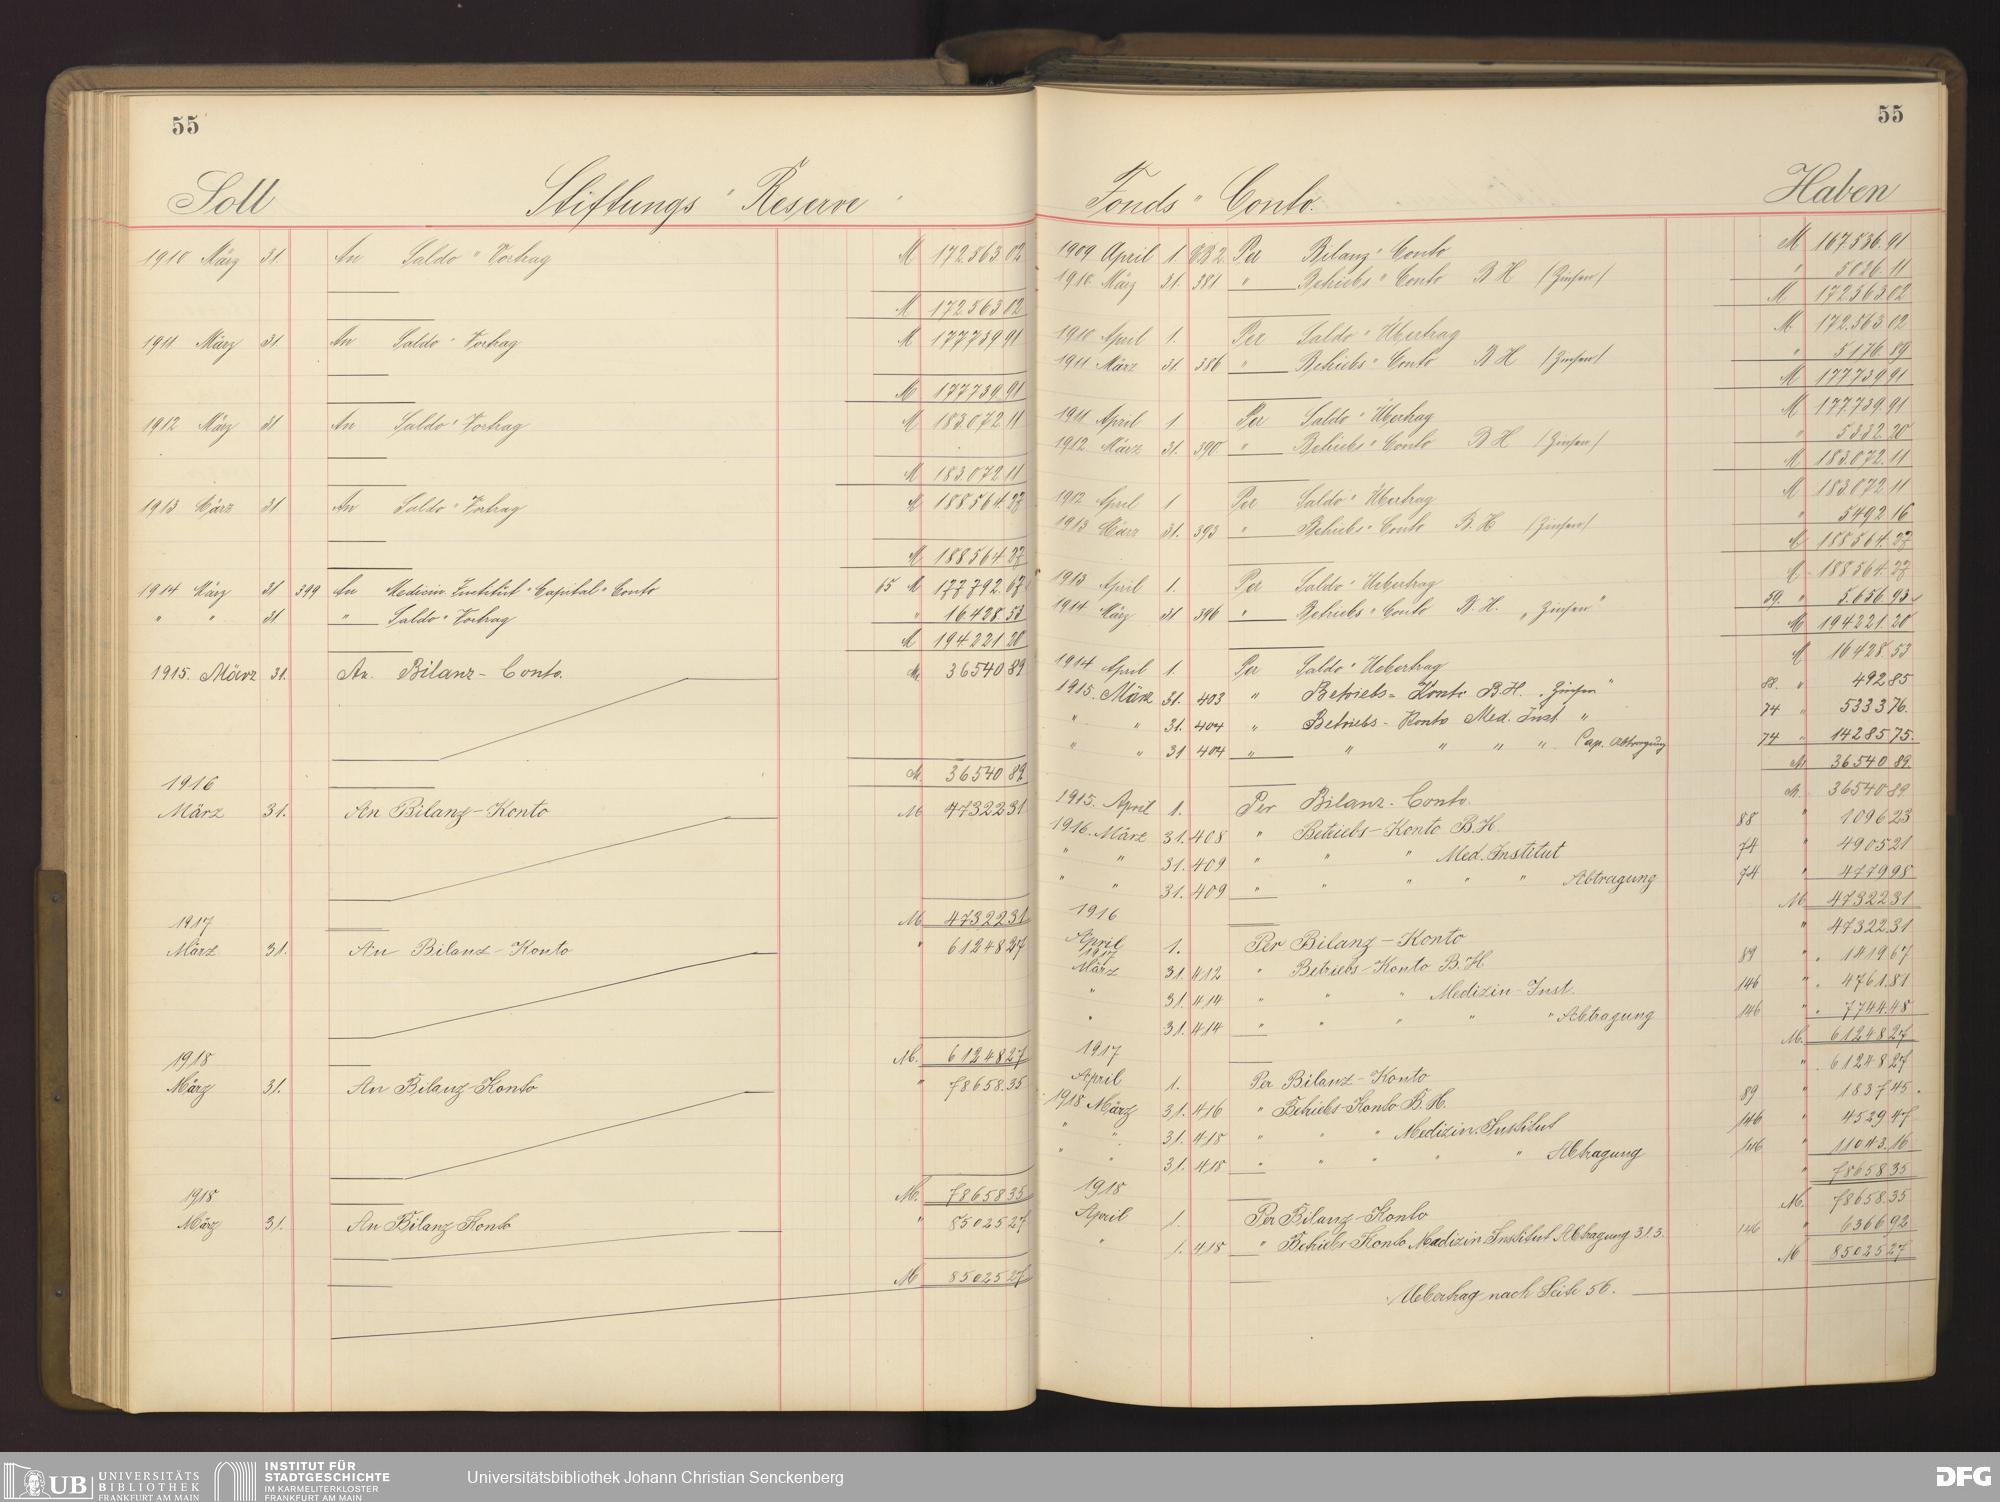 55
Soll Stiftungs " Reserve "
1910 März 31. An Saldo " Vortrag M 172563 02
M 172563 02
1911 März 31. An Saldo " Vortrag M 177739 91
M 177739.91
1912 März 31 An Saldo " Vortrag M 183.072 11
M 183.072 11
1913 März 31 An Saldo " Vortrag M 188564.27
M 188564.27
1914 März 31 399 An Medicin. Institut " Capital " Conto 65 M 177792.67
" " 31 " Saldo " Vortrag " 16428.53
M 194221.20
1915. März 31. An. Bilanz - Conto. M 36540 89
M. 36540 89
1916
März 31. An Bilanz - Konto M 47322 31
1917 M 47322 31
März 31. An Bilanz - Konto " 61248 27
1918 M. 61248 27
März 31. An Bilanz-Konto " 78658.35
1918 M. 78658 35
März 31. An Bilanz Konto " 85025 27
M 85025 27
55
Fonds " Conto. Haben
1909 April 1 CB2 Per Bilanz " Conto M 167.536.91
1910. März 31. 381 " Betriebs " Conto B H /Zinsen/ " 5026.11
M 172563 02
1910 April 1. Per Saldo " Übertrag M. 172.563 02
1911 März 31. 386 " Betriebs " Conto B H /Zinsen/ " 5176.89
M 177739 91
1911 April 1. Per Saldo " Übertrag M 177.739.91
1912 März 31. 390. " Betriebs " Conto B H /Zinsen/ " 5332.20
M 183.072.11
1912 April 1 Per Saldo " Übertrag M 183072 11
1913 März 31. 393 " Betriebs " Conto B. H /Zinsen/ " 5492 16
M 188564.27
1913 April 1. Per Saldo " Uebertrag M 188564 27
1914 März 31 396 " Betriebs " Conto B. H. „ Zinsen " 59. " 5.656.93
M 194221.20
1914 April 1. Per Saldo " Uebertrag M 16428.53
1915. März 31. 403 " Betriebs = Konto B.H. „ Zinsen " 88. " 492 85
" " 31. 404 " Betriebs - Konto Med. Inst " 74 " 5333 76.
" " 31 404 " " " " " Cap. Abtragung 74 " 14285 75.
M 36540 89.
1915. April 1. Per Bilanz - Conto. M. 36540 89
1916. März 31. 408 " Betriebs - Konto B.H. 88 " 1096 23
" " 31. 409 " " " Med. Institut 74 " 4905 21
" " 31. 409 " " " " " Abtragung 74 " 4779 98
M 47322 31
1916
April 1. Per Bilanz - Konto " 47322.31
1917
März 31. 412 " Betriebs - Konto B.H 89 " 1419 67
" 31. 414 " " " Medizin - Inst. 146 " 4761.81
" 31. 414 " " " " " Abtragung 146 " 7744.48
M. 61248 27
1917
April 1. Per Bilanz - Konto " 61248 27
1918 März 31. 416 " Betriebs-Konto B.H. 89 " 1837 45.
" " 31. 418 " " " Medizin.Institut 146 " 4529 47
" " 31. 418 " " " " " Abtragung 146 " 11043.16
" 78658 35
1918
April 1. Per Bilanz - Konto M. 78658.35
" 1. 418 " Betriebs-Konto Medizin Institut Abtragung 31.3. 146 " 6366 92
M 85025 27
Uebertrag nach Seite 56.
UB UNIVERSITÄTS
BIBLIOTHEK
FRANKFURT AM MAIN
INSTITUT FÜR
STADTGESCHICHTE
IM KARMELITERKLOSTER
FRANKFURT AM MAIN
Universitätsbibliothek Johann Christian Senckenberg
DFG